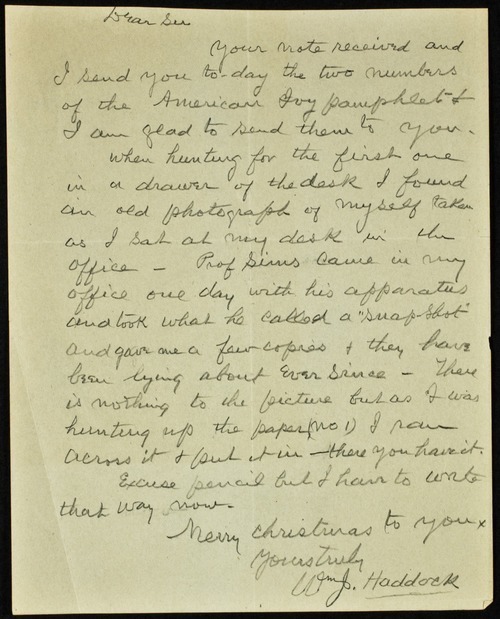 Dear Sir
Your note received and
I send you to-day the two numbers
of the American Ivy pamphlet &
I am glad to send them to you.
When hunting for the first one
in a drawer of the desk I found
an old photograph of myself taken
as I sat at my desk in the
office – Prof Sims came in my
office one day with his apparatus
and took what he called a "snap-shot"
and gave me a few copies & they have
been lying about ever since – There
is nothing to the picture but as I was
hunting up the paper, (no 1) I ran
across it & put it in – there you have it.
Excuse pencil but I have to write
that way now.
Merry Christmas to you
Yours truly
Wm J. Haddock